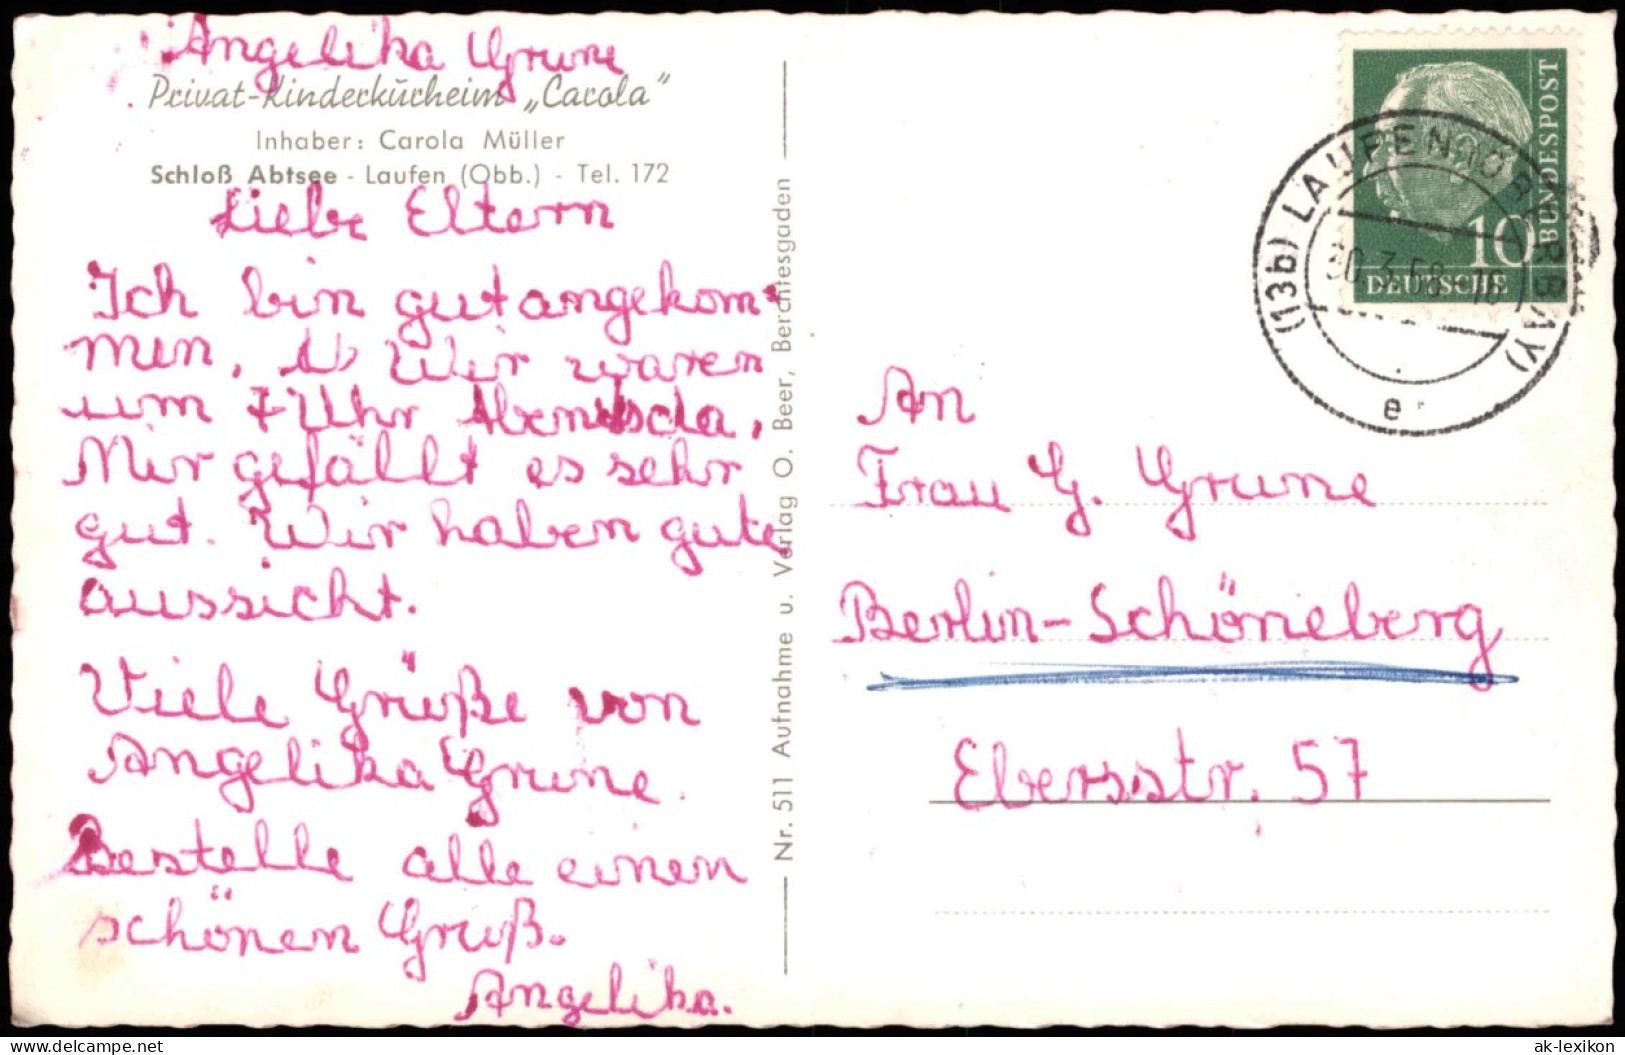 Angelika Grune
Privat-Kinderkurheim „Carola"
Inhaber: Carola Müller
Schloß Abtsee - Laufen (Obb.) - Tel. 172
Liebe Eltern
Ich bin gut angekom-
men, Wir waren
um 7 Uhr Abends da.
Mir gefällt es sehr
gut. Wir haben gute
aussicht.
Viele Grüße von
Angelika Grune.
Bestelle alle einen
schönen Gruß.
Angelika.
Nr. 511 Aufnahme u. Verlag O. Beer, Berchtesgaden
DEUTSCHE
BUNDESPOST
10
(13b) LAUFEN (OBERBAY)
e
An
Frau G. Grune
Berlin-Schöneberg
Ebersstr. 57
www.delcampe.net
ak-lexikon